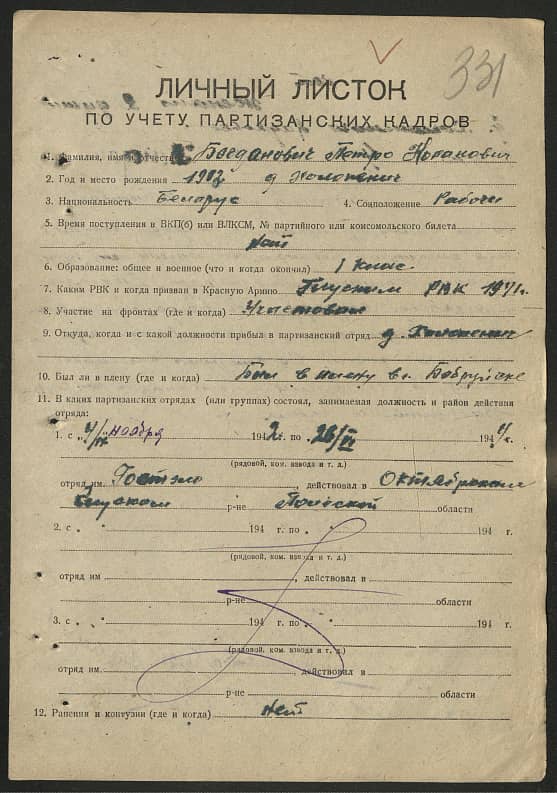 331
ЛИЧНЫЙ ЛИСТОК
ПО УЧЕТУ ПАРТИЗАНСКИХ КАДРОВ
1. Фамилия, имя и отчество Богданович Петро
2. Год и место рождения д
3. Национальность Беларус 4. Соцположение Рабочи
5. Время поступления в ВКП(б) или ВЛКСМ, № партийного или комсомольского билета
нет
6. Образование: общее и военное (что и когда окончил) 1 клас.
7. Каким РВК и когда призван в Красную Армию Глуским РВК 1941г.
8. Участие на фронтах (где и когда)
9. Откуда, когда и с какой должности прибыл в партизанский отряд д.
10. Был ли в плену (где и когда) Был в плену в г. Бобруйске
11. В каких партизанских отрядах (или группах) состоял, занимаемая должность и район действия
отряда:
1. с „ ноября 1942 г. по 28/VI 1944 г.
(рядовой, ком. взвода и т. д.)
отряд им. , действовал в Октябрьском
Глуском р-не Полеской области
2. с „ " 194 г. по " 194 г.
(рядовой, ком. взвода и т. д.)
отряд им , действовал в
р-не области
3. с „ " 194 г. по " 194 г.
(рядовой, ком. взвода и т. д.)
отряд им. , действовал в
р-не области
12. Ранения и контузии (где и когда) Нет